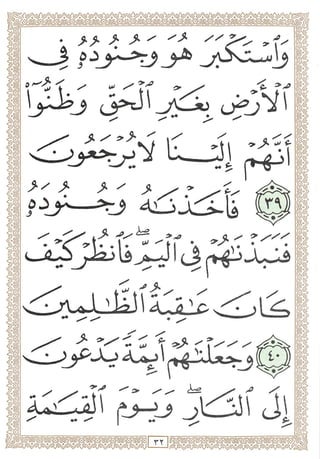 وَٱسۡتَكۡبَرَ هُوَ وَجُنُودُهُۥ فِي
ٱلۡأَرۡضِ بِغَيۡرِ ٱلۡحَقِّ وَظَنُّوٓاْ
أَنَّهُمۡ إِلَيۡنَا لَا يُرۡجَعُونَ
٣٩ فَأَخَذۡنَٰهُ وَجُنُودَهُۥ
فَنَبَذۡنَٰهُمۡ فِي ٱلۡيَمِّۖ فَٱنظُرۡ كَيۡفَ
كَانَ عَٰقِبَةُ ٱلظَّٰلِمِينَ
٤٠ وَجَعَلۡنَٰهُمۡ أَئِمَّةٗ يَدۡعُونَ
إِلَى ٱلنَّارِۖ وَيَوۡمَ ٱلۡقِيَٰمَةِ
٣٢